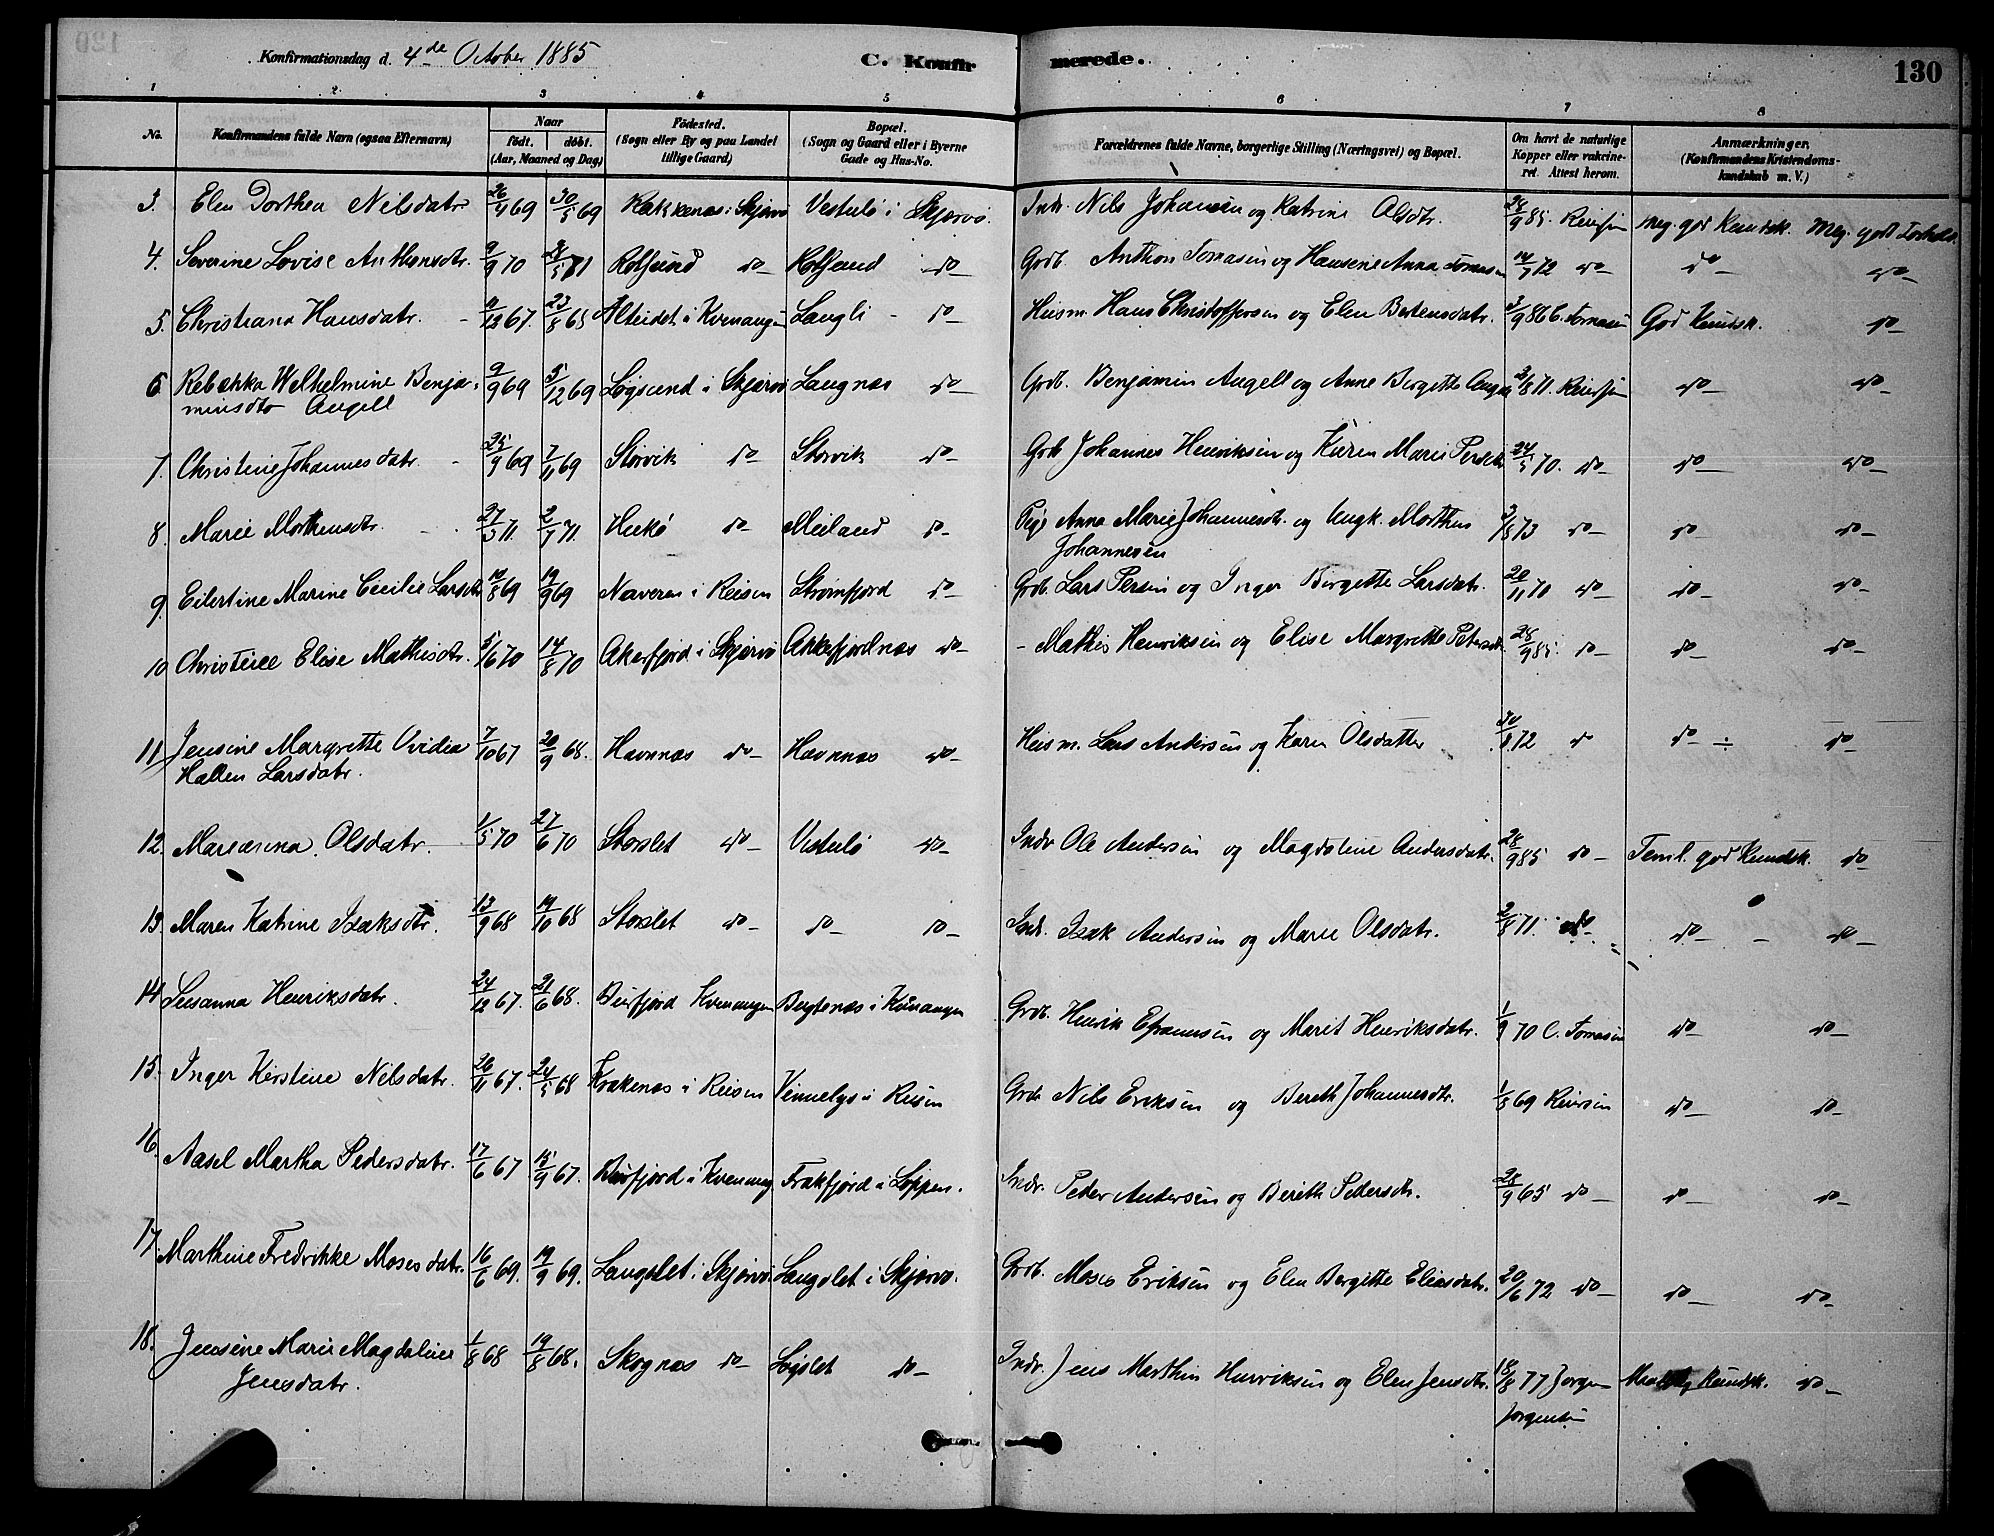 Konfirmationsdag d. 4de October 1885
C. Konfir
merede.
130
1 2 3 4 5 6 7 8
No.
Konfirmandens fulde Navn (ogsaa Efternavn)
Naar
födt. döbt.
(Aar, Maaned og Dag)
Födested.
(Sogn eller By og paa Landet
tillige Gaard)
Bopæl.
(Sogn og Gaard eller i Byerne
Gade og Hus-No.
Forældrenes fulde Navne, borgerlige Stilling (Næringsvei) og Bopæl.
Om havt de naturlige
Kopper eller vakcine-
ret. Attest herom.
Anmærkninger.
(Konfirmandens Kristendoms-
kundskab m. V.)
3. Elen Dorthea Nilsdatr 26/4 69 30/5 69 i Skjærvö i Skjærvö. Indr. Nils Johansen og Katrine Olsdtr. 28/9 85. Meg. god Kundsk. Meg. godt Forhold
4. Severine Lovise Anthonsdtr. 9/9 70 71 Rotsund do Rotsund do Grdb. Anthon Tomasen og Hansine Anna Tomasen 14/7 72 do do do
5. Christiana Hansdatr. 11/12 67. 23/8 68 Alteidet i Kvenangen Langli - do Husm. Hans Christoffersen og Elen Bertensdatr. God Kundsk. do
6 Rebækka Welhelmine Benja- 9/9 69 5/12 69 Lögsund i Skjærvö Laugnæs do Grdb. Benjamin Angell og Anne Bergette Angell 3/8 71. do do
minsdtr Angell
7. Christine Johannesdatr. 25/9 69 7/11 69 Storvik do Storvik do Grdb Johannes Henriksen og Karen Marie 24/5 70. do do do
8. Marie Morthensdtr. 27/3 71. 2/7 71. Hukö do Meiland do Pige Anna Marie Johannesdtr. og Ungk. Morthen 3/8 73 do do do
Johannesen
9. Eilertine Marine Cecilie Larsdtr 10/8 69 19/9 69 i Reisen Strömfjord do Grdb. Lars Persen og Inger Birgette Larsdatr. 20/11 70 do do do
10 Christine Elise Mathisdtr. 5/6 70 14/8 70 Akerfjord i Skjærvö Akkefjordnæs do - Mathis Henriksen og Elise Margrette Petersdtr. 28/9 85. do do do
11 Jensine Margrette Ovidia 7/10 67 20/9 68. Havnnæs do Havnnæs do Husm. Lars Andersen og Karen Olsdatter 30/8 72 do do ÷ do
Hallen Larsdatr.
12. Olsdatr. 1/5 70 27/6 70 Storslet do do Indr Ole Andersen og Magdalene Andersdatr. 28/9 85 do Teml. god Kundsk. do
13. Maren Katrine Isaksdtr. 13/9 68 19/10 68 Storslet do do do Indr. Isak Andersen og Marie Olsdatr. 2/8 71. do do - do
14 Susanna Henriksdatr. 24/12 67. 21/6 68. Burfjord Kvenangen i Kvænangen Grdb. Henrik Efraimsen og Marit Henriksdatr. 1/9 70 C. Tomasen do do
15. Inger Kirstine Nilsdatr. 26/11 67. 24/5 68 Krakenæs i Reisen i Reisen Grdb Nils Eriksen og Bereth Johannesdtr. 1/8 69 Reiersen do do
16. Aasel Martha Pedersdatr. 17/6 67 15/9 67. Burfjord i Kvenang Frakfjord i Loppen. Indr. Peder Andersen og Bereth Pedersdtr. 28/9 65 do do do
17. Marthine Fredrikke Mosesdatr. 16/6 69. 19/9 69. Langslet i Skjærvö Langslet i Skjærvö. Grdb. Moses Eriksen og Elen Bergitte Eliasdatr. 20/6 72 do do do
18. Jensine Marie Magdalene 1/8 68 19/8 68. Skognæs do do Indr. Jens Marthin Henriksen og Elen Jensdtr. 18/8 77 Jorgen Kundsk. do
Jensdatr. Jorgensen